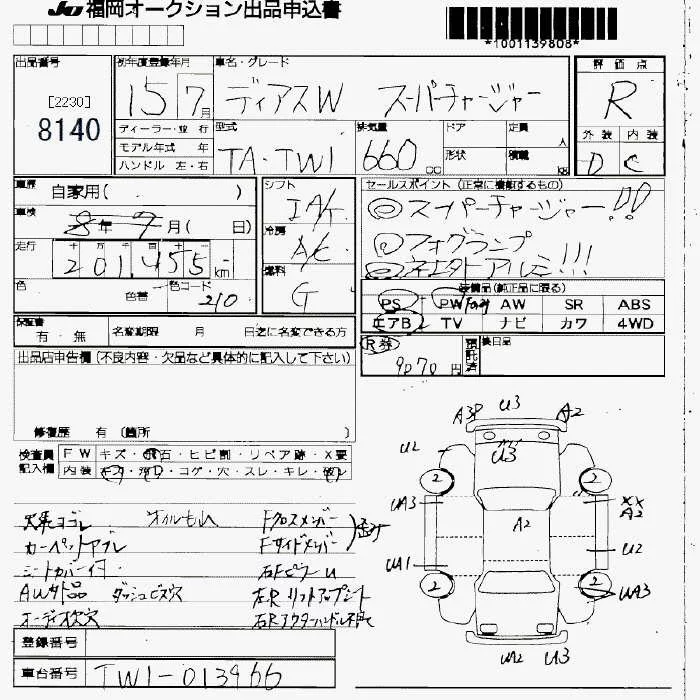 JU 福岡オークション出品申込書
*1001139808*
出品番号
[2230]
8140
初年度登録年月
15 7月
車名・グレード
ディアスW スーパーチャージャー
評価点
R
外装 内装
D C
ディーラー・並行
モデル年式 年
ハンドル 左・右
型式
TA-TW1
排気量
660 CC
ドア
形状
定員 人
積載 kg
車歴 自家用( )
車検 8年9月( 日)
走行
十 万 千 百 十 一
201,455 km
色
色替
色コード
210
シフト
IAT
冷房
A/C
燃料
G
セールスポイント (正常に機能するもの)
◎スーパーチャージャー!!
◎フォグランプ
装備品(純正品に限る)
PS PW AW SR ABS
エアB TV ナビ カワ 4WD
保証書
有・無
名変期限 月 日迄に名変できる方
R券
9070円
預託済
後日品
出品店申告欄(不良内容・欠品など具体的に記入して下さい)
修復歴 有 (箇所 )
検査員記入欄
FW キズ・飛石・ヒビ割・リペア跡・X要
内装 コゲ・穴・スレ・キレ
オイルもれ Fクロスメンバー
カーペットヤブレ Fサイドメンバー
シートカバー付 右FピラーU
AW外品 ダッシュビス穴 左R リフトアップシート
オーディオ欠穴 右Rアウターハンドル不良
登録番号
車台番号 TW1-013966
U3
A3P
A2
U3
U2
2
2
UA3
A2
XX
A2
U2
UA1
2
2
UA3
UA2
U3